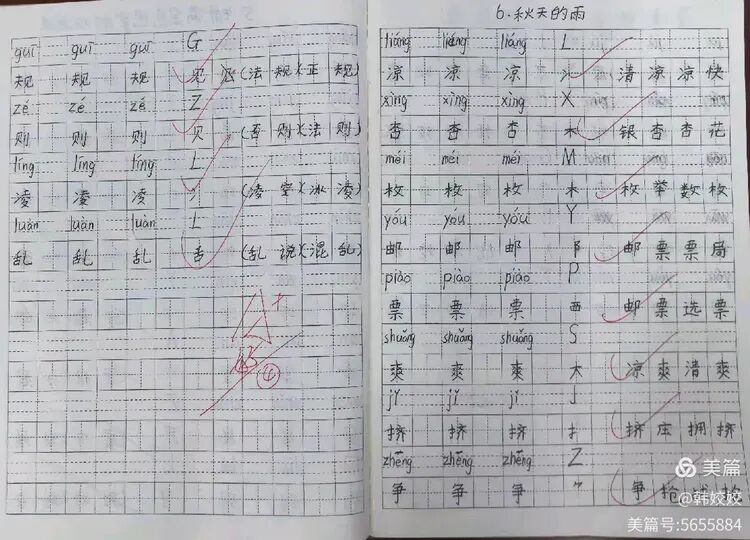 guī guī guī G
规 规 规 见 (法 规)(正 规)
zé zé zé Z
则 则 则 贝 (否 则)(法 则)
líng líng líng L
凌 凌 凌 冫 (凌 空)(冰 凌)
luàn luàn luàn L
乱 乱 乱 舌 (乱 说)(混 乱)
A+
④
6.秋天的雨
liáng liáng liáng L
凉 凉 凉 冫 清 凉 凉 快
xìng xìng xìng X
杏 杏 杏 木 银 杏 杏 花
méi méi méi M
枚 枚 枚 木 枚 举 数 枚
yóu yóu yóu Y
邮 邮 邮 阝 邮 票 票 局
piào piào piào P
票 票 票 覀 邮 票 选 票
shuǎng shuǎng shuǎng S
爽 爽 爽 大 凉 爽 清 爽
jǐ jǐ jǐ J
挤 挤 挤 扌 挤 压 拥 挤
zhēng zhēng zhēng Z
争 争 争 争 抢
美篇
@韩姣姣
美篇号:5655884